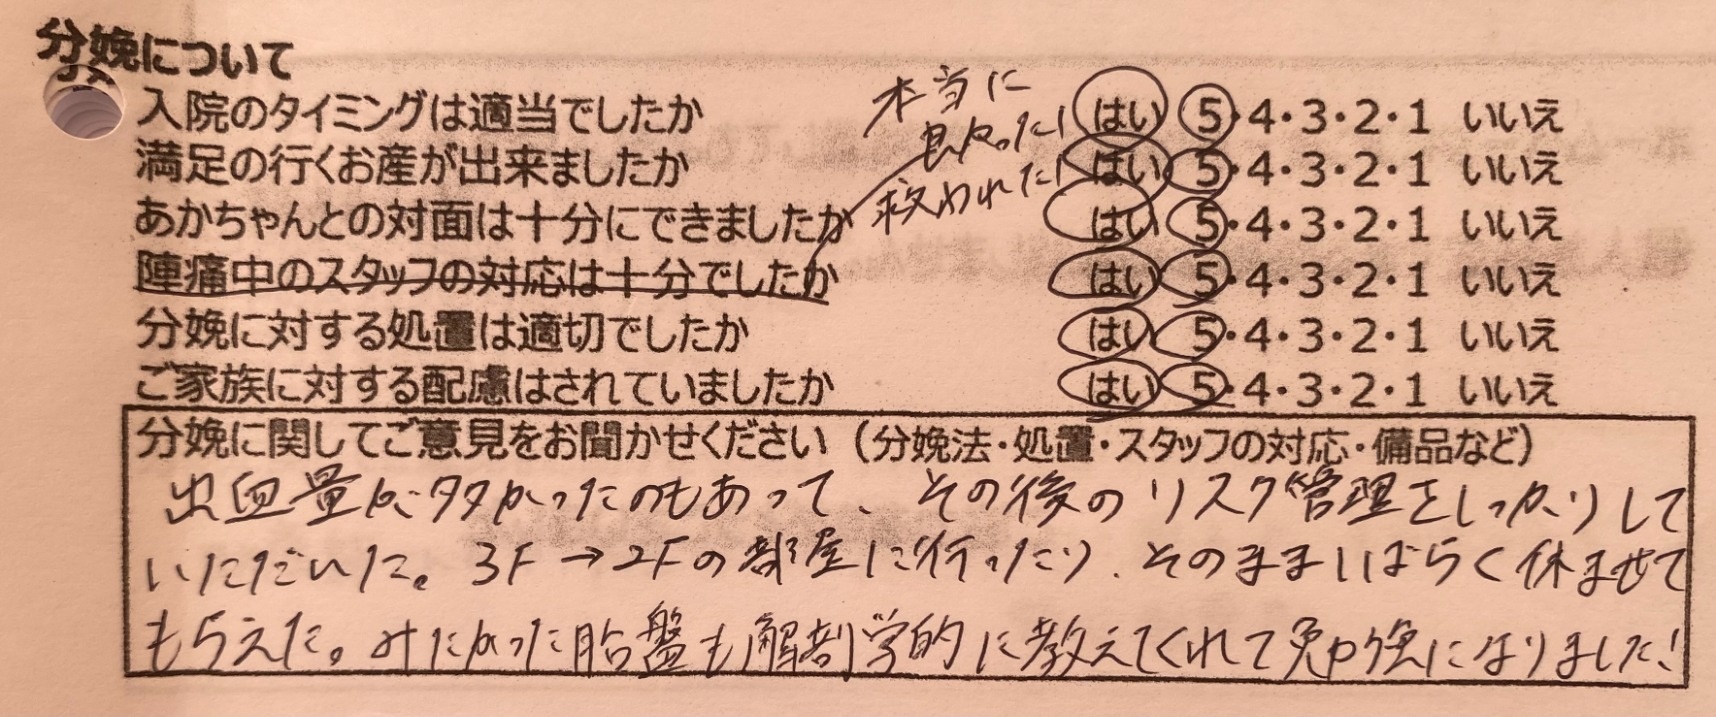 分娩について
入院のタイミングは適当でしたか はい 5・4・3・2・1 いいえ
満足の行くお産が出来ましたか はい 5・4・3・2・1 いいえ
あかちゃんとの対面は十分にできましたか はい 5・4・3・2・1 いいえ
陣痛中のスタッフの対応は十分でしたか はい 5・4・3・2・1 いいえ
本当に
良かった!
救われた!
分娩に対する処置は適切でしたか はい 5・4・3・2・1 いいえ
ご家族に対する配慮はされていましたか はい 5・4・3・2・1 いいえ
分娩に関してご意見をお聞かせください（分娩法・処置・スタッフの対応・備品など）
出血量が多かったのもあって、その後のリスク管理をしっかりして
いただいた。3F→2Fの部屋に行ったり、そのまましばらく休ませて
もらえた。みたかった胎盤も解剖学的に教えてくれて勉強になりました!